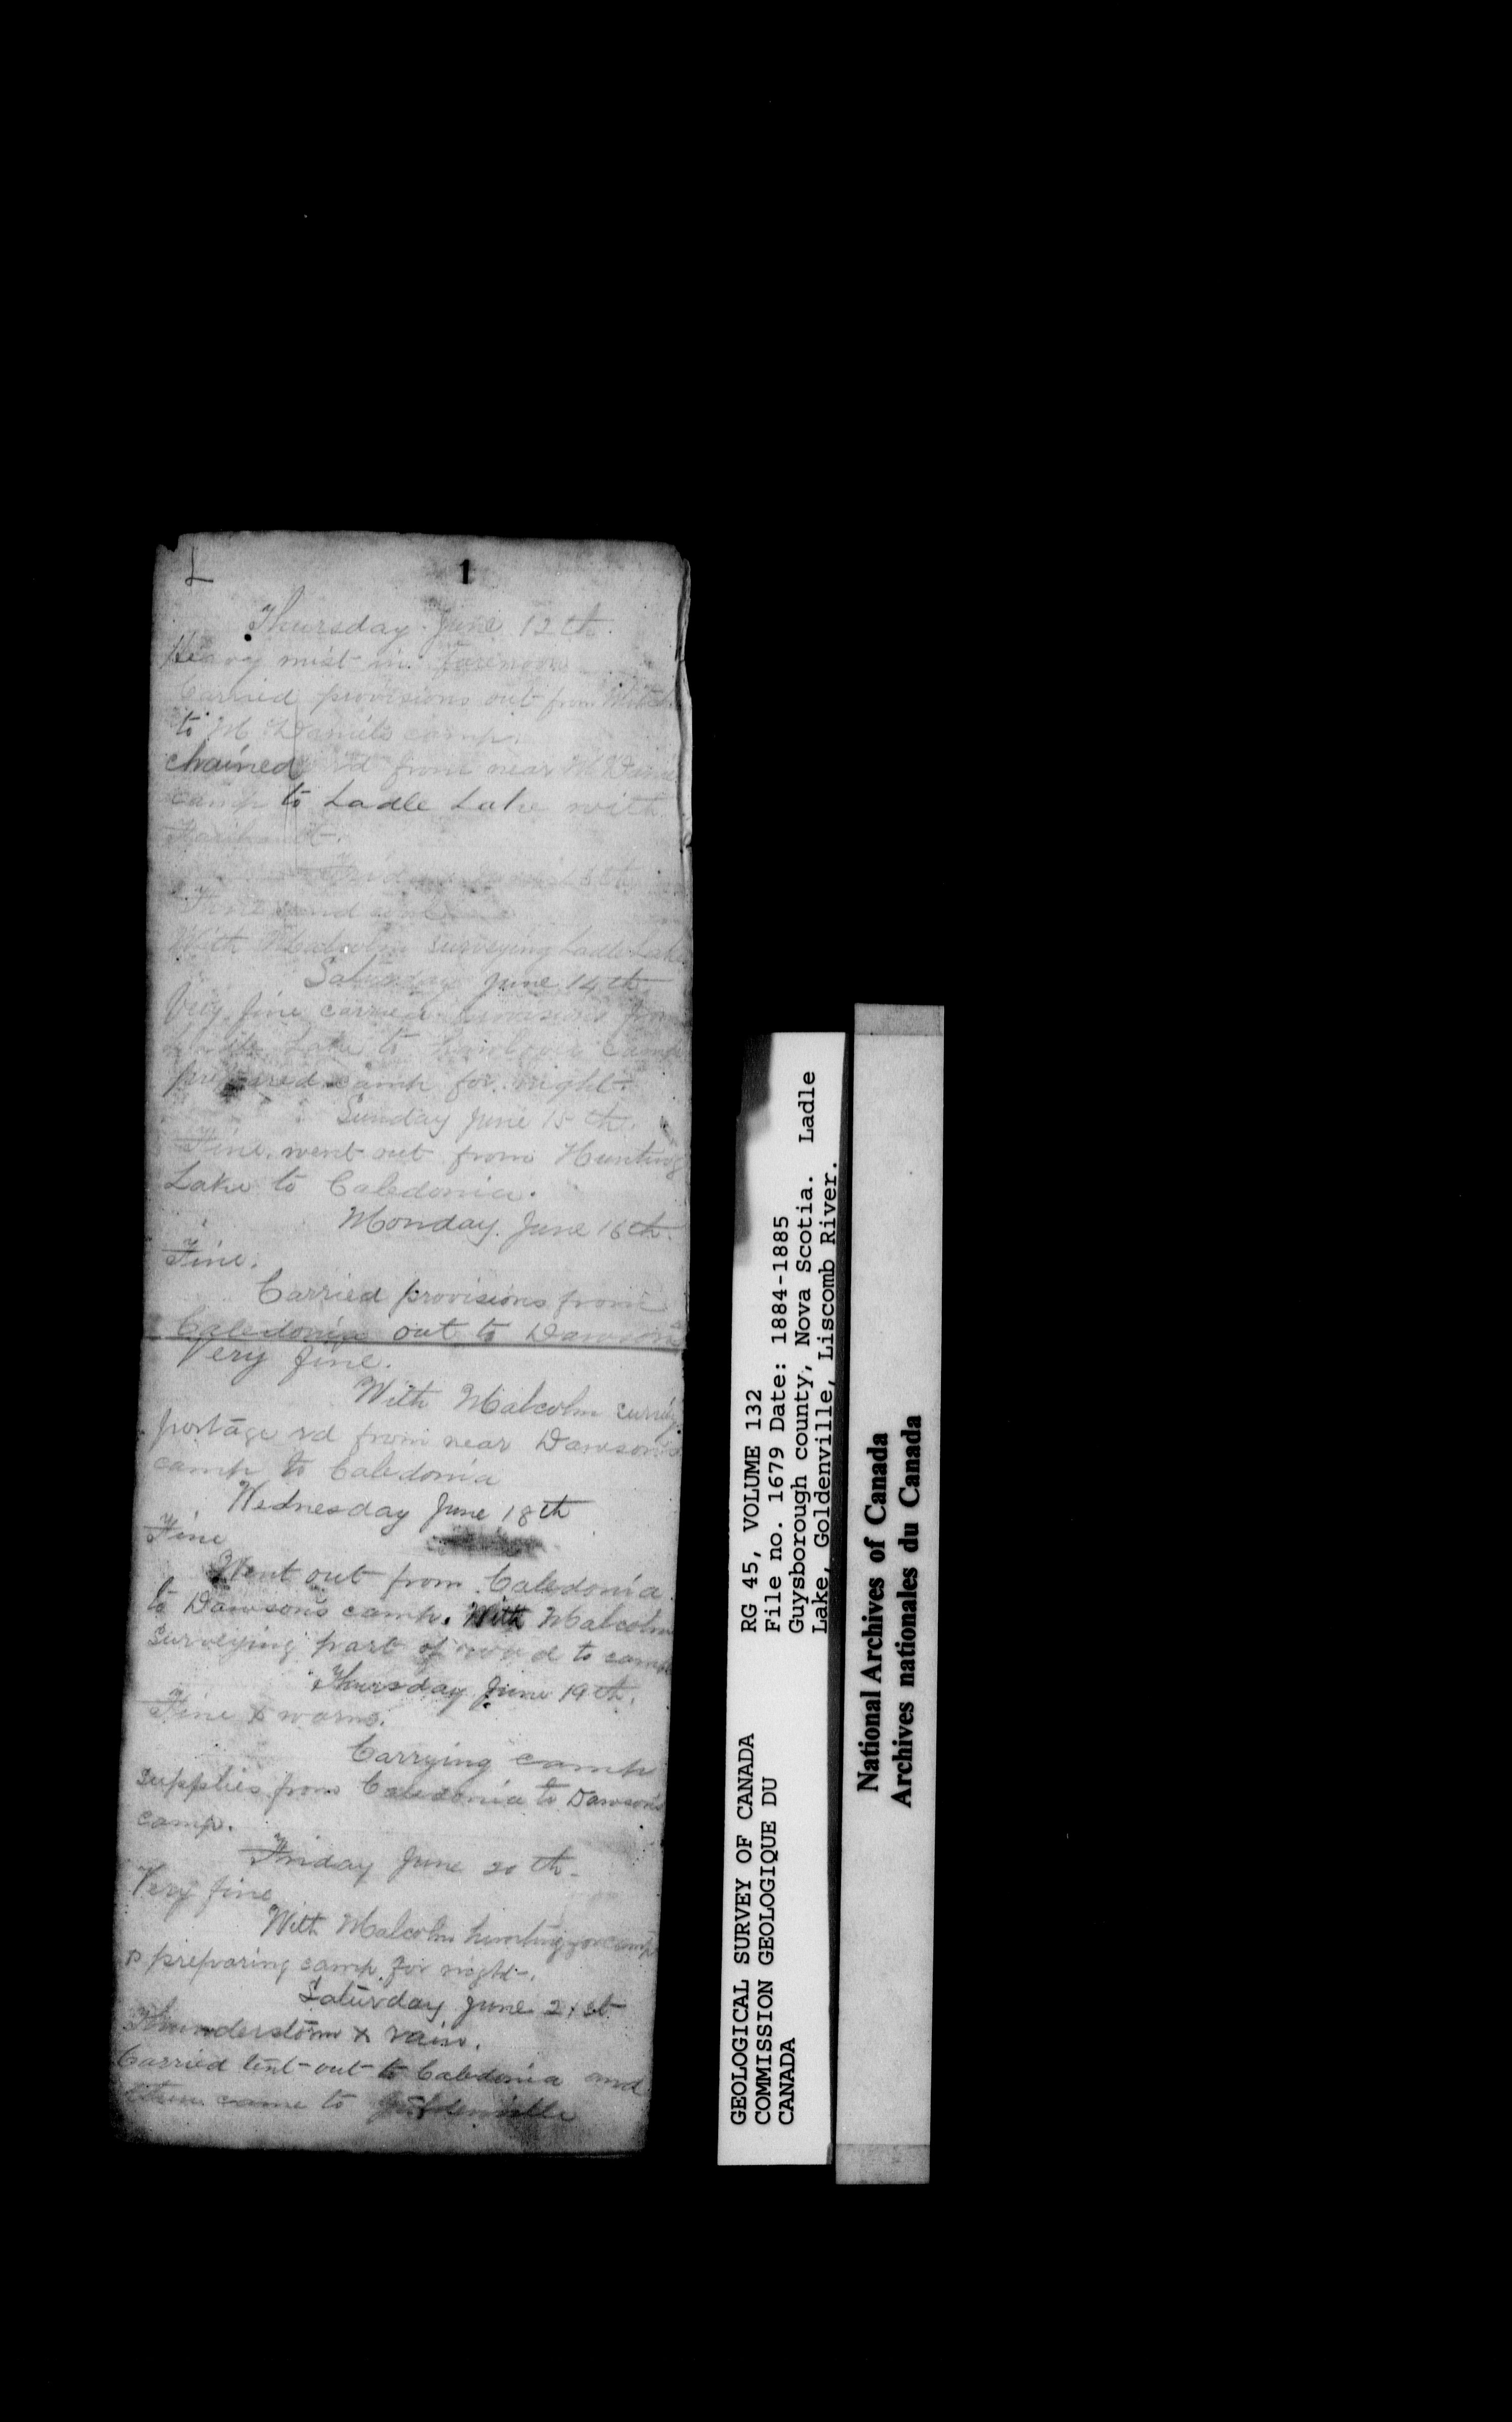 1
Thursday June 12th
Heavy mist in forenoon
Carried provisions out from
to McDaniels camp.
chained rd from near McDaniels
camp to Ladle Lake with
Friday June 13th
Fine and cool
With Malcolm surveying Ladle Lake
Saturday June 14th
Very fine carried provisions from
Ladle Lake to camp
prepared camp for night.
Sunday June 15th.
Fine. went out from Hunting
Lake to Caledonia.
Monday. June 16th.
Fine.
Carried provisions from
Caledonia out to Dawsons
Very fine.
With Malcolm
portage rd from near Dawson's
camp to Caledonia
Wednesday June 18th
Fine
Went out from Caledonia
to Dawson's camp. With Malcolm
surveying part of road to camp
Thursday June 19th.
Fine & warm.
Carrying camp
supplies from Caledonia to Dawson's
camp.
Friday June 20th.
Very fine
With Malcolm hunting for camp
& preparing camp for night.
Saturday June 21st
Thunderstorm & rain.
Carried tent out to Caledonia and
then came to Goldenville
GEOLOGICAL SURVEY OF CANADA
COMMISSION GEOLOGIQUE DU
CANADA
RG 45, VOLUME 132
File no. 1679 Date: 1884-1885
Guysborough county, Nova Scotia. Ladle
Lake, Goldenville, Liscomb River.
National Archives of Canada
Archives nationales du Canada